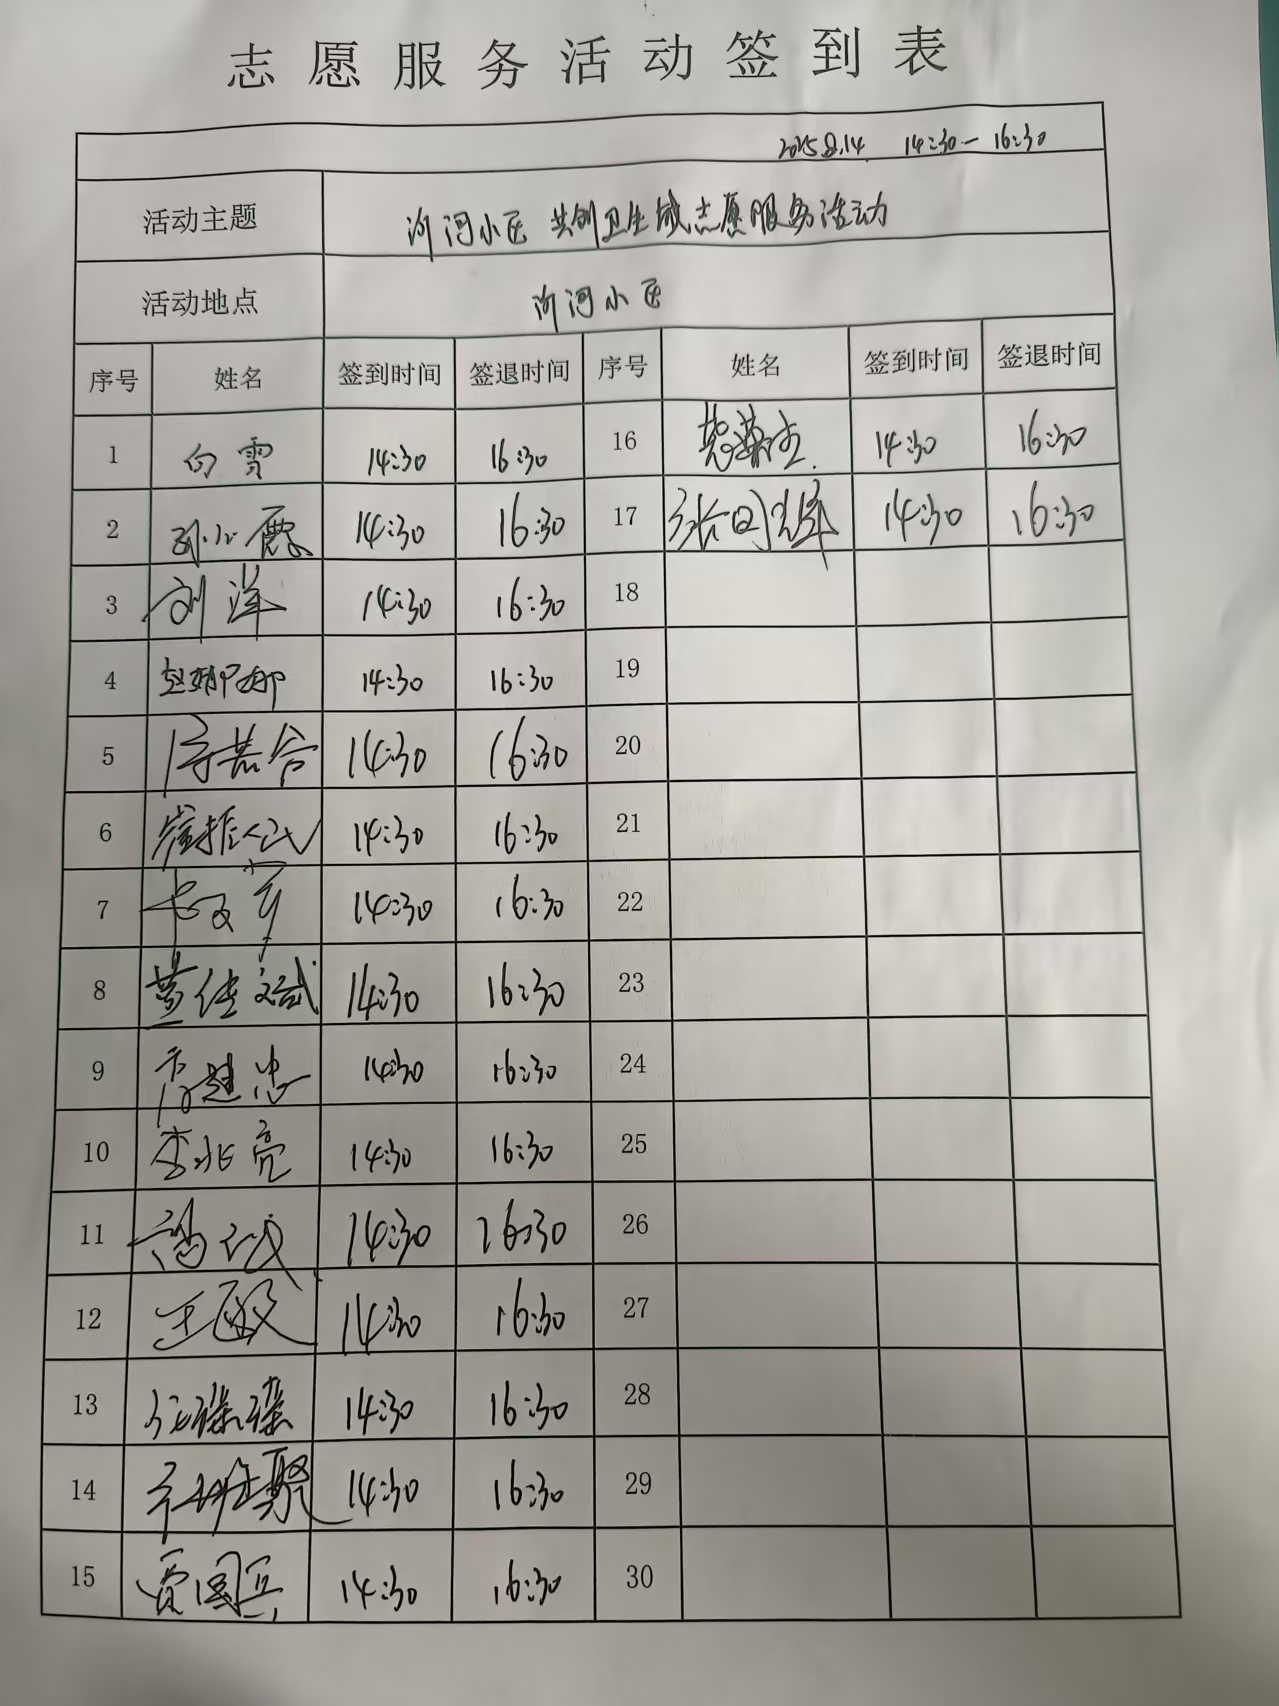 志愿服务活动签到表
2025.8.14 14:30-16:30
活动主题 河小区 共创卫生城志愿服务活动
活动地点 河小区
序号 姓名 签到时间 签退时间 序号 姓名 签到时间 签退时间
1 白雪 14:30 16:30 16 14:30 16:30
2 孙小霞 14:30 16:30 17 14:30 16:30
3 刘洋 14:30 16:30 18
4 赵娜娜 14:30 16:30 19
5 14:30 16:30 20
6 崔振民 14:30 16:30 21
7 14:30 16:30 22
8 黄佳斌 14:30 16:30 23
9 14:30 16:30 24
10 李兆亮 14:30 16:30 25
11 14:30 16:30 26
12 王敏 14:30 16:30 27
13 14:30 16:30 28
14 14:30 16:30 29
15 贾国兵 14:30 16:30 30